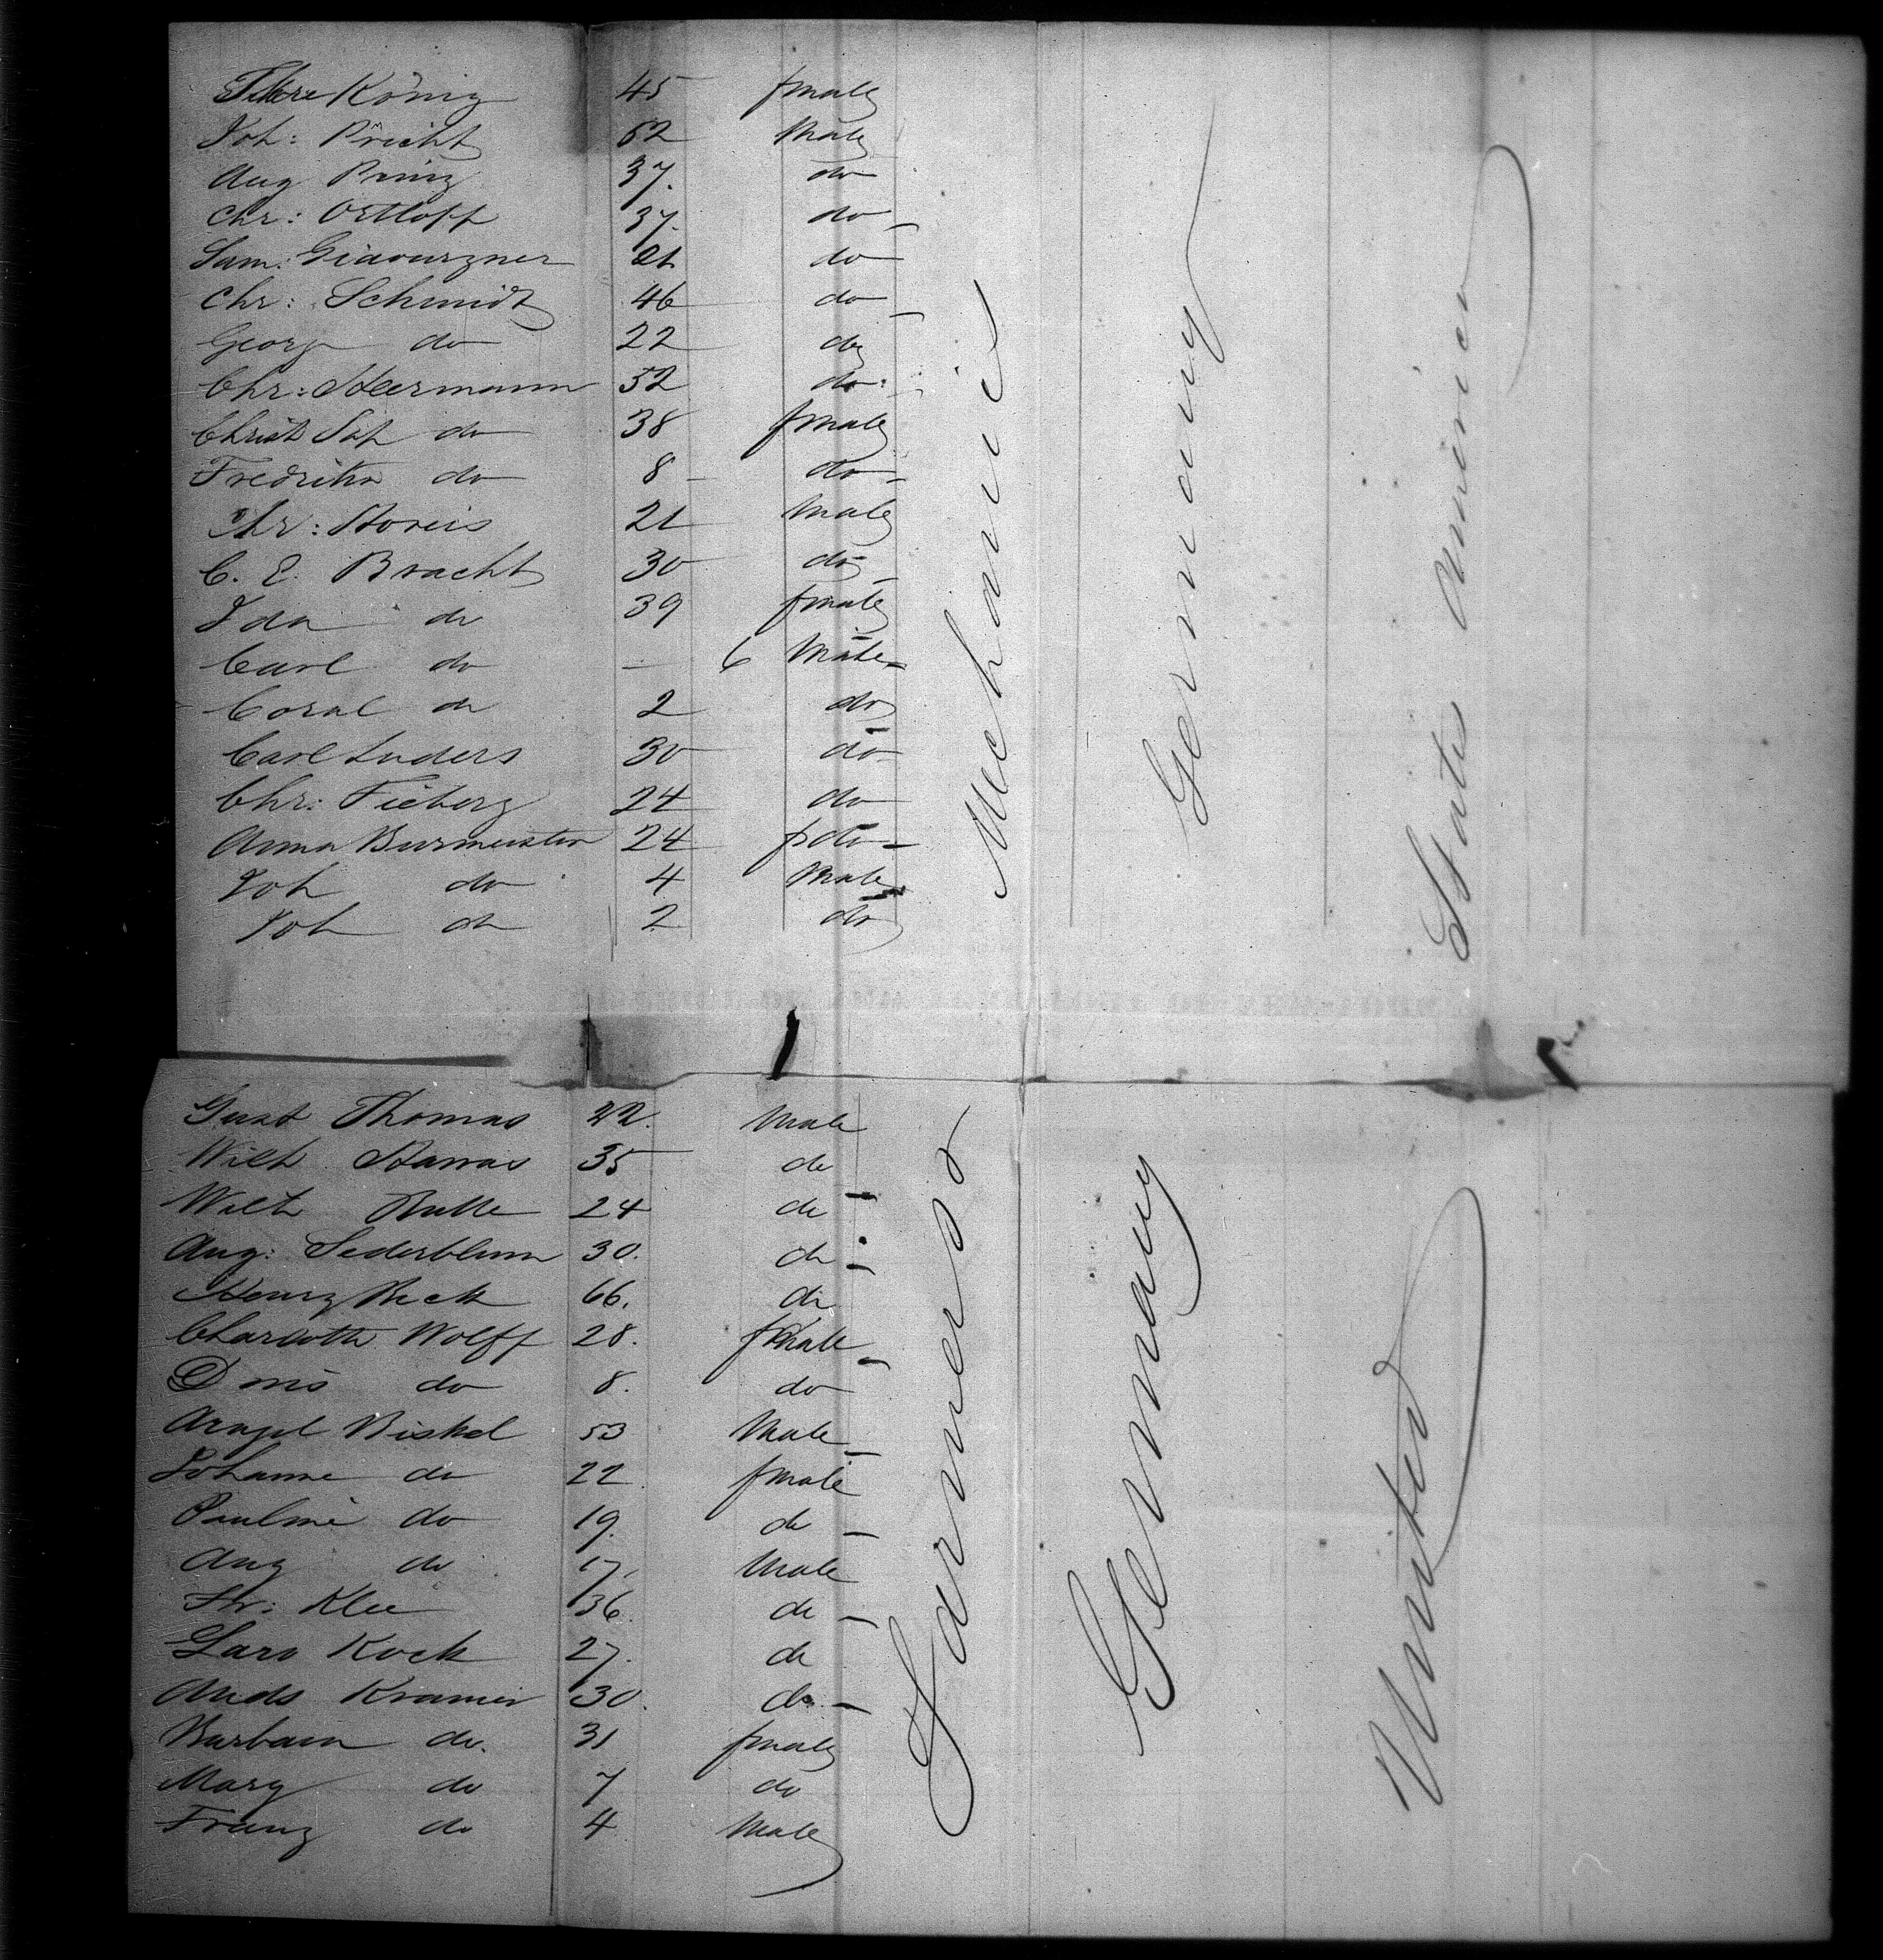 König 45 fmale
Joh: Precht 62 Male
Aug Prinz 37. do
Chr: Ortloff 37. do
Sam: 21 do
Chr: Schmidt 46 do
Georg do 22 do
Chr: Heermann 52 do
Christ Sop do 38 fmale
Fredrika do 8 do
Chr: 21 Male
C. E. Bracht 30 do
Ida do 39 fmale
Carl do — 6 Male
do 2 do
Carl Luders 30 do
Chr: Fieberg 24 do
Anna Burmeister 24 f do
Joh do 4 Male
Joh do 2 do
Mechanic
Germany
States America
Gust Thomas 22. Male
Wilh 35 do
Wilh Bulle 24 do
Aug: Sederblum 30. do
Henry Beck 66. do
Charlotte Wolff 28. fmale
Doris do 8. do
53 Male
Johanne do 22 fmale
Pauline do 19. do
Aug do 17. Male
Fr: Klee 36 do
Lars Kock 27. do
Ands Kramer 30. do
Barbara do. 31 fmale
Mary do 7 do
Franz do 4 Male
Farmers
Germany
United